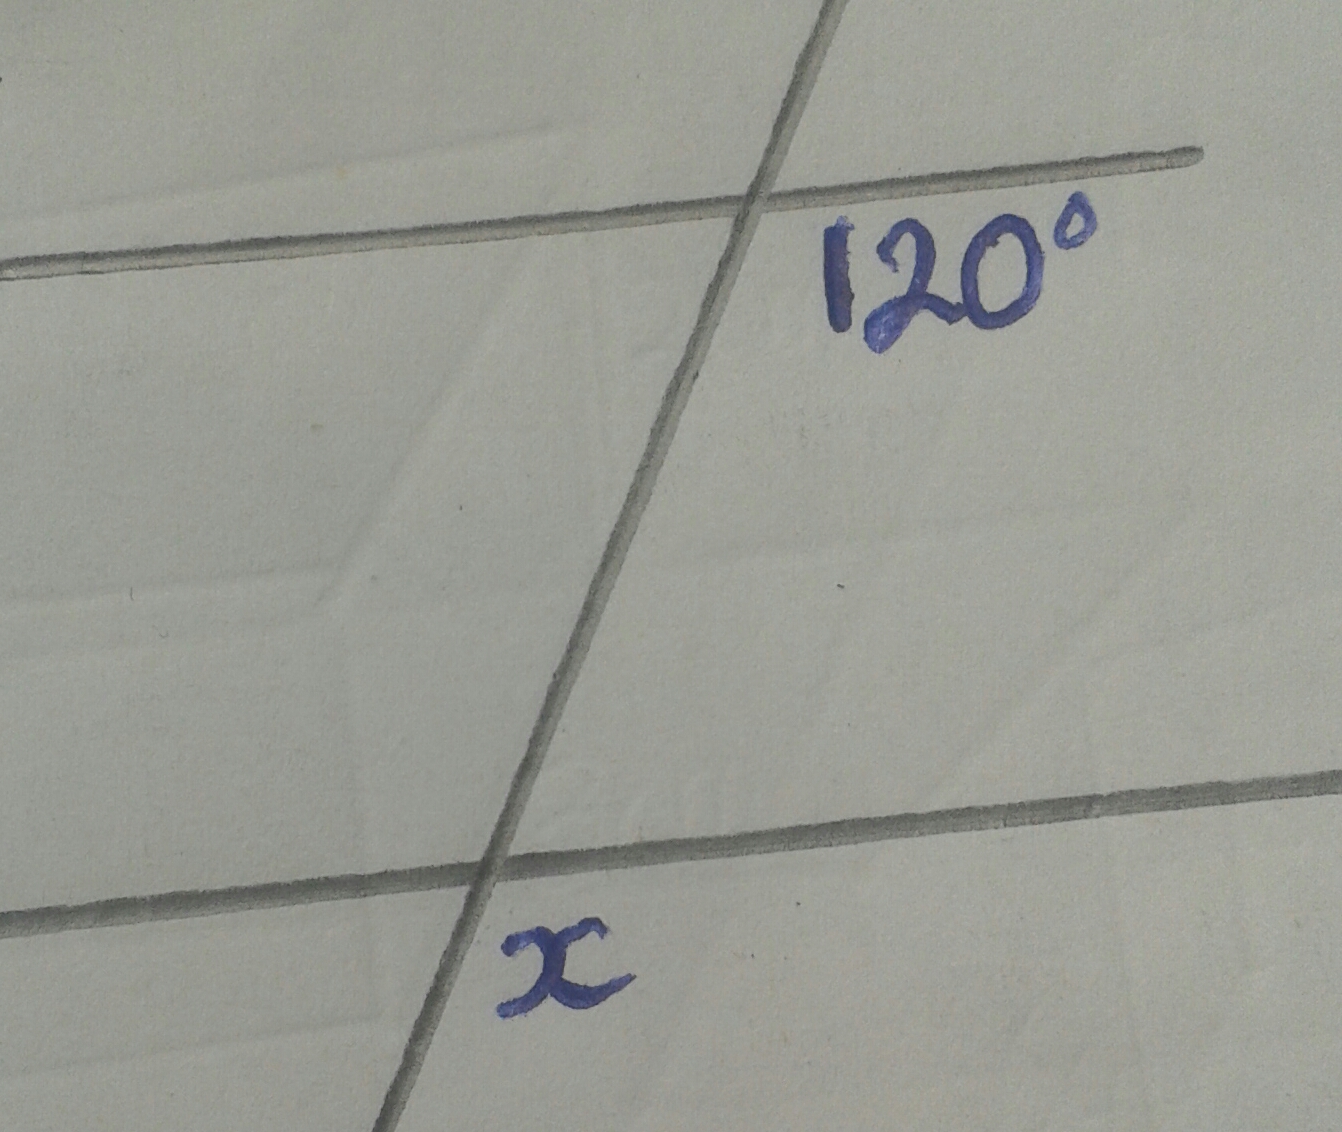 120°
x